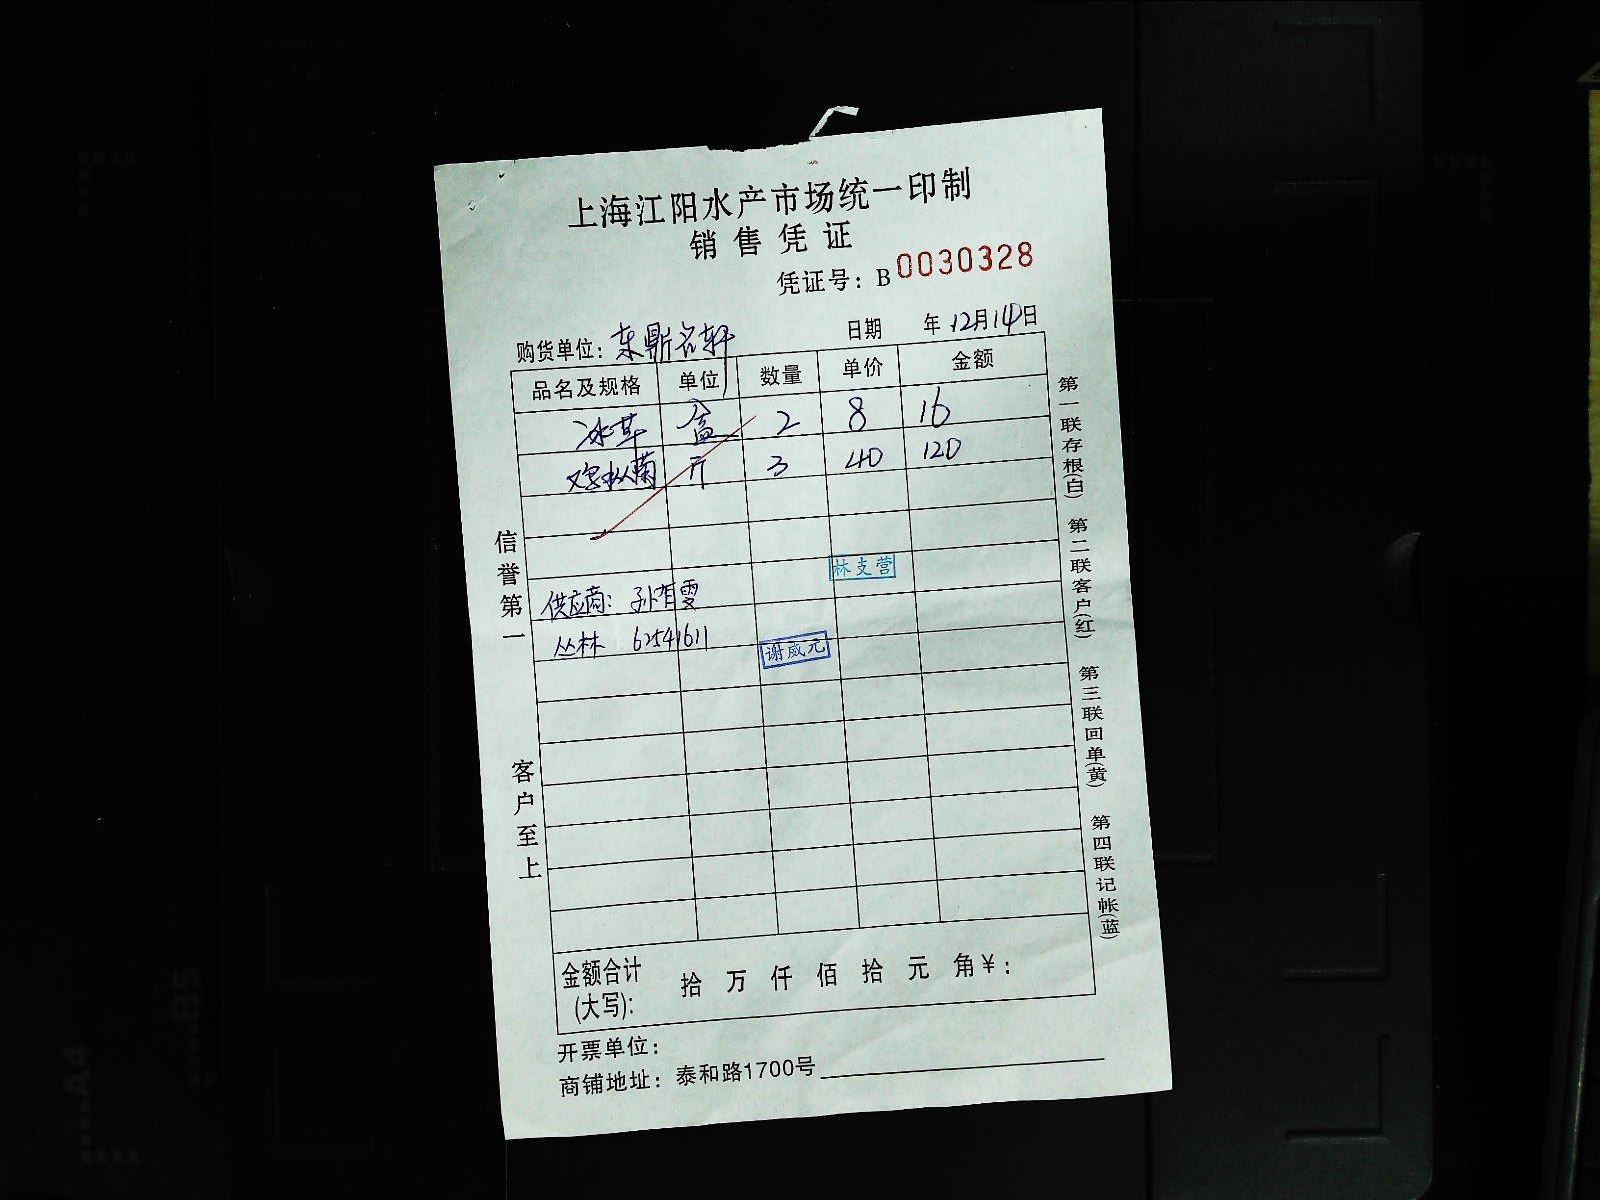 上海江阳水产市场统一印制
销售凭证
凭证号：B 0030328
购货单位：东鼎名轩 日期 年12月14日
品名及规格 单位 数量 单价 金额
冰草 盒 2 8 16
鸡枞菌 斤 3 40 120
林支营
供应商：孙有雯
丛林 62541611
谢威元
金额合计(大写)： 拾 万 仟 佰 拾 元 角￥：
开票单位：
商铺地址：泰和路1700号
信誉第一
客户至上
第一联存根(白)
第二联客户(红)
第三联回单(黄)
第四联记帐(蓝)
A4
B5